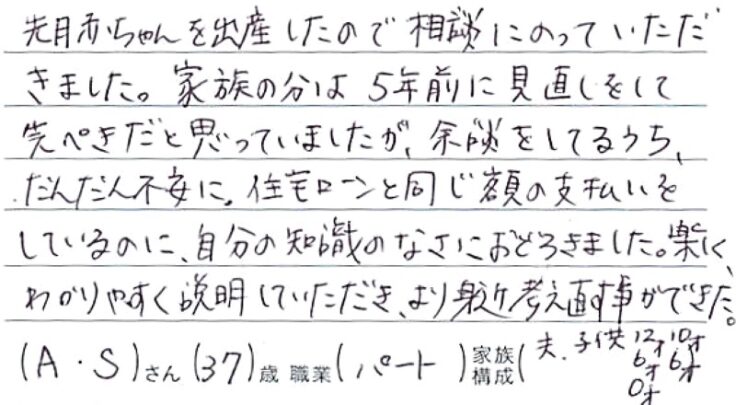 先月赤ちゃんを出産したので相談にのっていただ
きました。家族の分は5年前に見直しをして
完ぺきだと思っていましたが、余談をしてるうち、
だんだん不安に。住宅ローンと同じ額の支払いを
しているのに、自分の知識のなさにおどろきました。楽しく、
わかりやすく説明していただき、より身近に考え直す事ができた。
(A・S)さん(37)歳 職業(パート)家族構成(夫、子供 12才 10才
6才 6才
0才